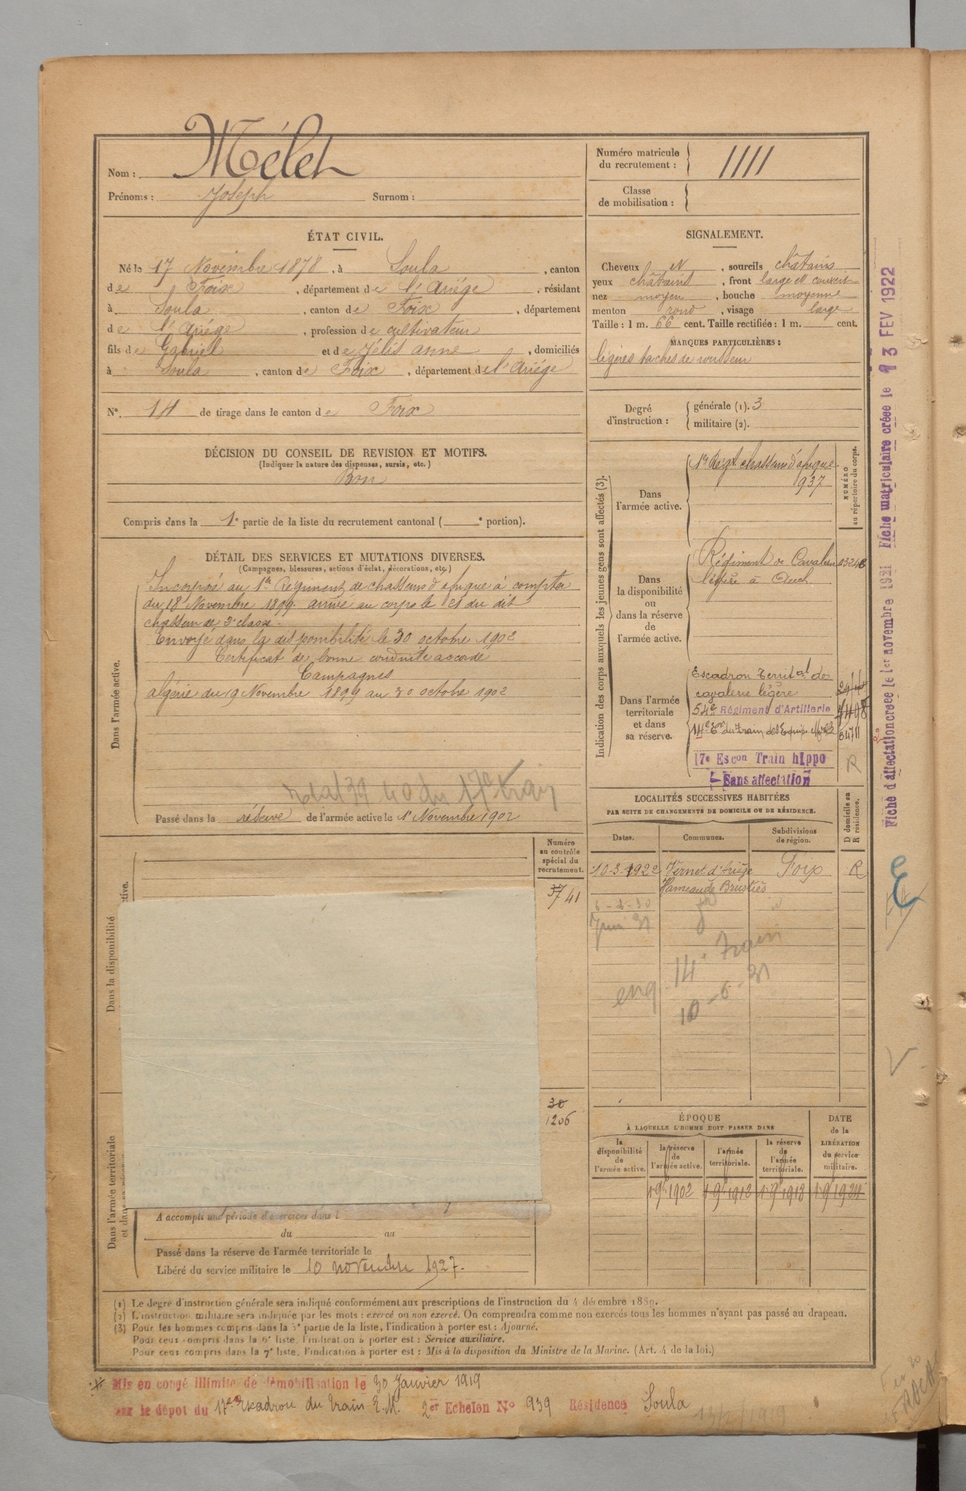 Nom : Mélet
Prénoms : Joseph Surnom :
Numéro matricule du recrutement : 1111
Classe de mobilisation :
ÉTAT CIVIL.
Né le 17 Novembre 1878, à Soula, canton
de Foix, département de l'Ariége, résidant
à Soula, canton de Foix, département
de l'Ariége, profession de cultivateur
fils de Gabriel et de Jélis anne, domiciliés
à Soula, canton de Foix, département de l'Ariége
N°. 14 de tirage dans le canton de Foix
SIGNALEMENT.
Cheveux et, sourcils châtains
yeux châtains, front large et couvert
nez moyen, bouche moyenne
menton rond, visage large
Taille : 1 m. 66 cent. Taille rectifiée : 1 m. cent.
MARQUES PARTICULIÈRES :
légères taches de rousseur
Degré d'instruction : générale (1). 3
militaire (2).
DÉCISION DU CONSEIL DE REVISION ET MOTIFS.
(Indiquer la nature des dispenses, sursis, etc.)
Bon
Compris dans la 1e partie de la liste du recrutement cantonal ( e portion).
DÉTAIL DES SERVICES ET MUTATIONS DIVERSES.
(Campagnes, blessures, actions d'éclat, décorations, etc.)
Dans l'armée active.
Incorporé au 1er Régiment de chasseurs d'afrique à compter
du 18 Novembre 1899 arrivé au corps le 21 du dit
chasseur de 2e classe.
Envoyé dans la disponibilité le 30 octobre 1902
Certificat de bonne conduite accordé
Campagnes
algérie du 19 Novembre 1899 au 30 octobre 1902
Passé dans la réserve de l'armée active le 1er Novembre 1902
Indication des corps auxquels les jeunes gens sont affectés (3).
NUMÉRO au répertoire du corps.
Dans l'armée active.
1er Régt chasseurs d'afrique
937
Dans la disponibilité ou dans la réserve de l'armée active.
Régiment de Cavalerie
légère à Auch
Dans l'armée territoriale et dans sa réserve.
Escadron Territal de
cavalerie légère
54e Régiment d'Artillerie
17e Escon Train hippo
Sans affectation
R
LOCALITÉS SUCCESSIVES HABITÉES
PAR SUITE DE CHANGEMENTS DE DOMICILE OU DE RÉSIDENCE.
Dates. Communes. Subdivisions de région. D domicile ou R résidence.
10.3.1922 Vernet d'Ariège Foix R
Hameau de Brusties
6-2-30
Juin 31
14e Train
10-6-31
Numéro au contrôle spécial du recrutement.
37 41
30
1206
Dans la disponibilité
Dans l'armée territoriale
ÉPOQUE
À LAQUELLE L'HOMME DOIT PASSER DANS
DATE de la LIBÉRATION du service militaire.
la disponibilité de l'armée active.
la réserve de l'armée active.
l'armée territoriale.
la réserve de l'armée territoriale.
1 9bre 1902 1 9bre 1912 1 9bre 1918 1 9bre 1924
A accompli une période d'exercices dans :
du au
Passé dans la réserve de l'armée territoriale le
Libéré du service militaire le 10 novembre 1927.
(1) Le degré d'instruction générale sera indiqué conformément aux prescriptions de l'instruction du 4 décembre 1889.
(2) L'instruction militaire sera indiquée par les mots : exercé ou non exercé. On comprendra comme non exercés tous les hommes n'ayant pas passé au drapeau.
(3) Pour les hommes compris dans la 5e partie de la liste, l'indication à porter est : Ajourné.
Pour ceux compris dans la 6e liste, l'indication à porter est : Service auxiliaire.
Pour ceux compris dans la 7e liste, l'indication à porter est : Mis à la disposition du Ministre de la Marine. (Art. 4 de la loi.)
Mis en congé illimité de démobilisation le 30 Janvier 1919
sur le dépot du 17e Escadron du train E.M. 2er Echelon N° 939 Résidence Soula
Fiche d'affectation créée le 1er novembre 1921 Fiche matriculaire créée le 13 FEV 1922